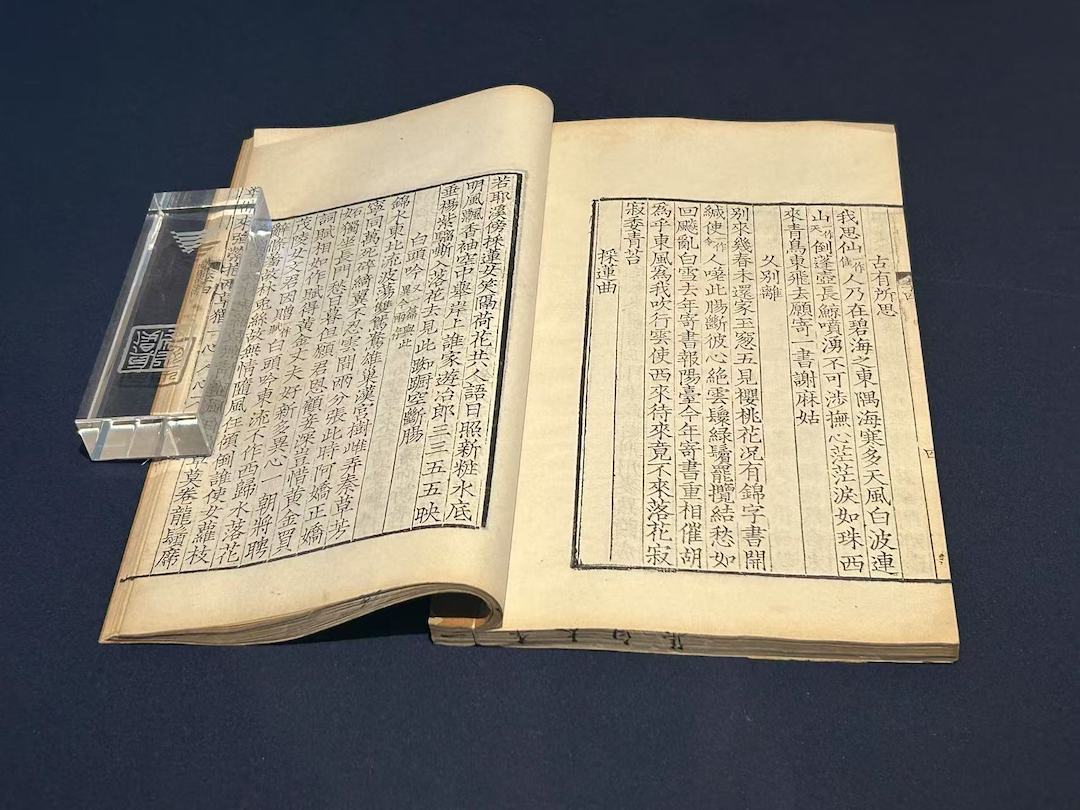 古有所思
我思仙一作佳人乃在碧海之東隅海寒多天風白波連
山一作天倒蓬壺長鯨噴湧不可涉撫心茫茫淚如珠西
來青鳥東飛去願寄一書謝麻姑
久別離
別來幾春未還家玉窓五見櫻桃花况有錦字書開
緘使一作令人嗟此腸斷彼心絕雲鬟綠鬢罷攬結愁如
回飈亂白雪去年寄書報陽臺今年寄書重相催胡
為乎東風為我吹行雲使西來待來竟不來落花寂
寂委青苔
採蓮曲
若耶溪傍採蓮女笑隔荷花共人語日照新粧水底
明風飄香袖空中舉岸上誰家遊冶郎三三五五映
垂楊紫騮嘶入落花去見此踟蹰空斷腸
白頭吟
錦水東北流波蕩雙鴛鴦雄巢漢宮樹雌弄秦草芳
寧同萬死碎綺翼不忍雲間兩分張此時阿嬌正嬌
妬獨坐長門愁日暮但願君恩顧妾深豈惜黃金買
詞賦相如作賦得黃金丈夫好新多異心一朝將聘
茂陵女文君因贈白頭吟東流不作西歸水落花
辭條羞故林兔絲故無情隨風任傾倒誰使女蘿枝
莫卷龍鬚席